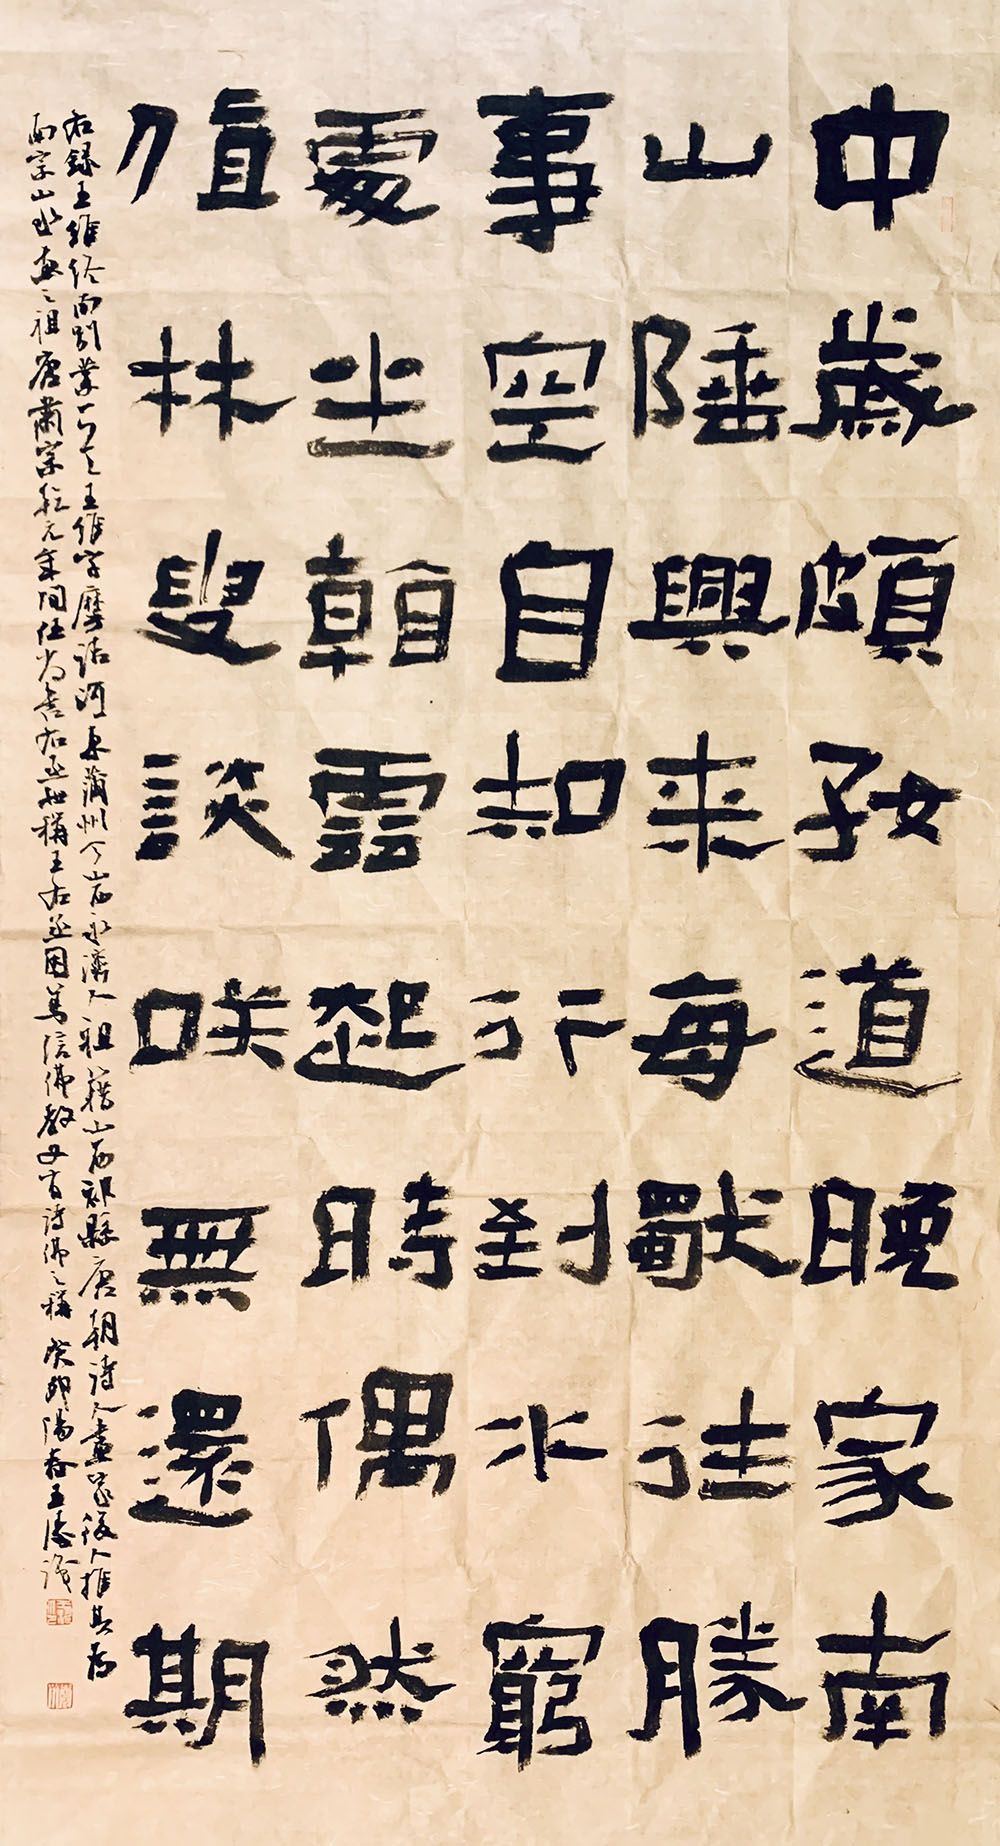 中歲頗好道晚家南
山陲興來每獨往勝
事空自知行到水窮
處坐看雲起時偶然
值林叟談咲無還期
右錄王維終南別業一首王維字摩詰河東蒲州今山西永濟人祖籍山西祁縣唐朝詩人畫家後人推其為
南宗山水畫之祖唐肅宗乾元年間任尚書右丞世稱王右丞因篤信佛教又有詩佛之稱癸卯陽春王識